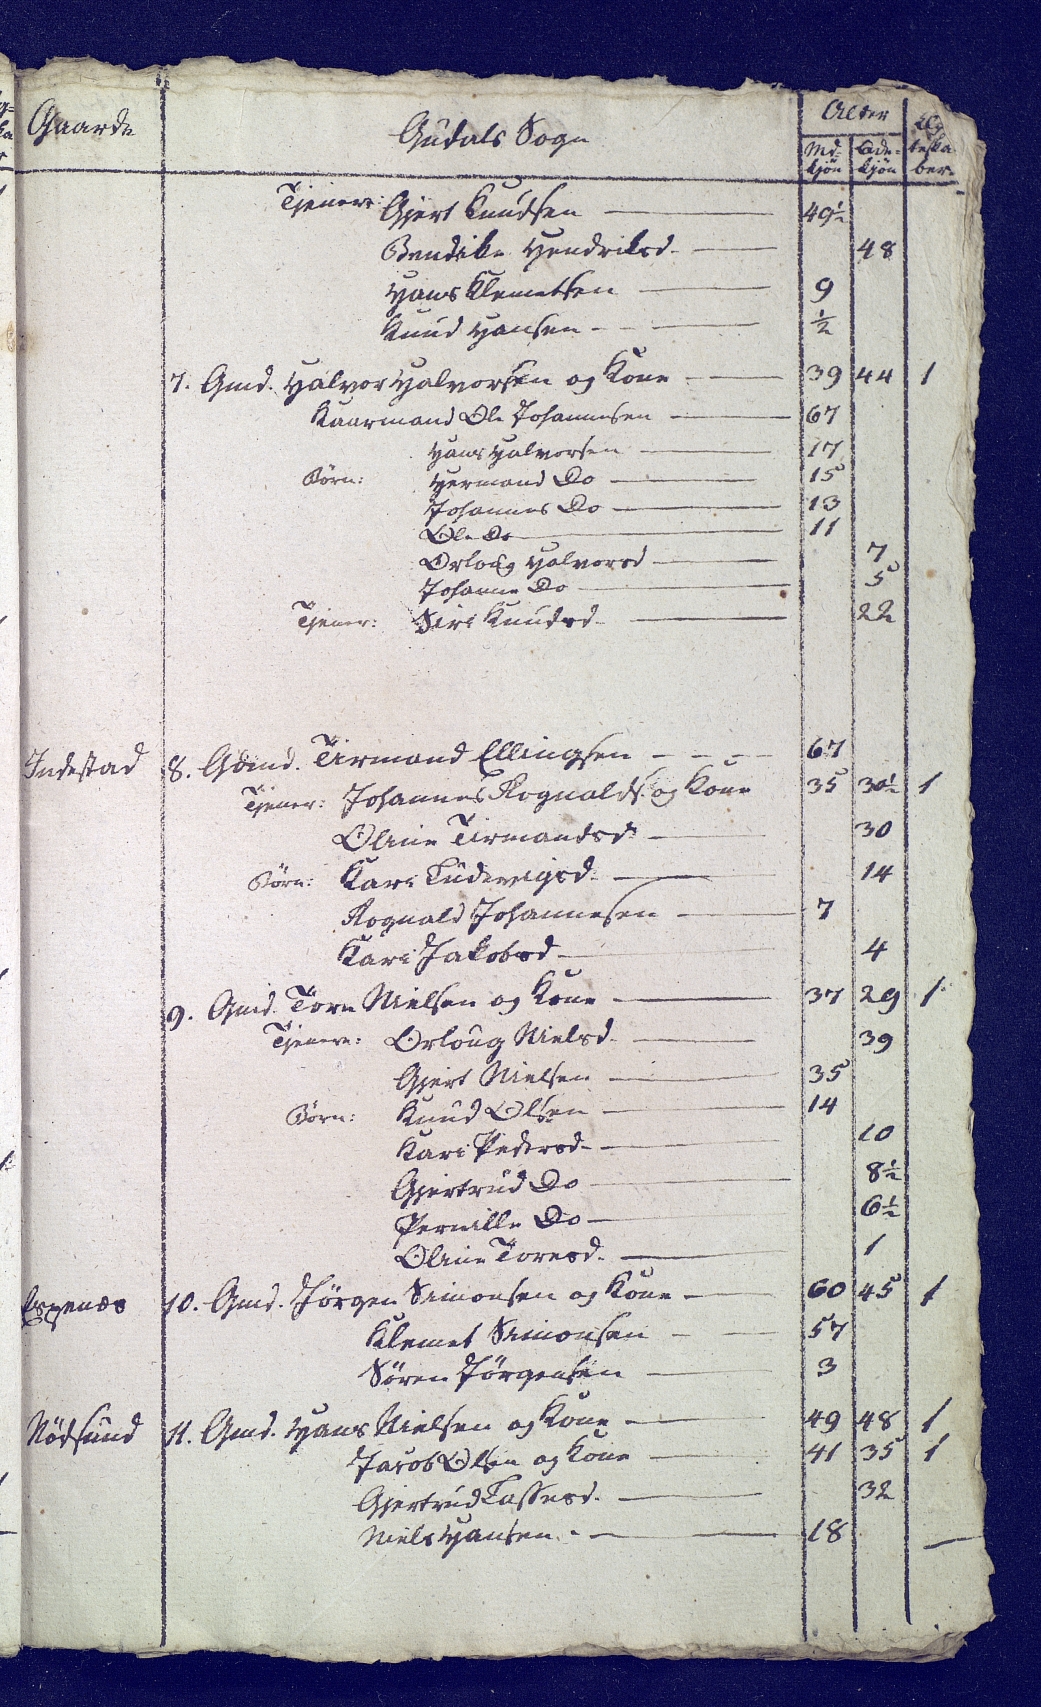 Gaarde Gudals Sogn Alder Ægteskaber
Mdkjön Qdekjön
Tjenere: Gjert Knudsen 49½
Bendike Hendriksd. 48
Hans Klemetsen 9
Knud Hansen ½
7. Gmd. Halvor Halvorsen og Kone 39 44 1
Kaarmand Ole Johannesen 67
Hans Halvorsen 17
Börn: Hermand Do 15
Johannes Do 13
Ole Do 11
Orloug Halvorsd 7
Johanne Do 5
Tjener: Siri Knudsd 22
Indestad 8. Tirmand Ellingsen 67
Tjener: Johannes Rognalds. og Kone 35 30½ 1
Oline Tirmandsd: 30
Börn: Kari Ludevigsd. 14
Rognald Johannesen 7
Kari Jakobsd 4
9. Gmd. Tore Nielsen og Kone 37 29 1
Tjenere: Orloug Nielsd. 39
Gjert Nielsen 35
Börn: Knud Olsen 14
Kari Pedersd. 10
Gjertrud Do 8½
Pernille Do 6½
Oline Toresd. 1
Espenæs 10. Gmd. Jörgen Simonsen og Kone 60 45 1
Klemet Simonsen 57
Sören Jörgensen 3
Nödsund 11. Gmd. Hans Nielsen og Kone 49 48 1
Jacob Olsen og Kone 41 35 1
Gjertrud Lassesd. 32
Niels Hansen 18